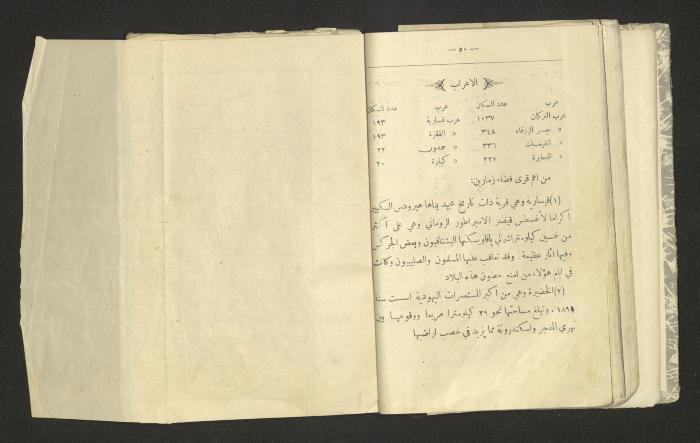 — ٥٠ —
الاعراب
عرب عدد السكان عرب عدد السكان
عرب التركمان ١٠٣٧ عرب قسارية ١٩٣
« جسر الزرقاء ٣٤٨ « الفقرة ١٩٣
« النفيعات ٣٣٦ « حمدون ٢٢
« الدمايرة ٢٢٧ « كبارة ٢٠
من اهم قرى قضاء زمارين:
(١) قيسارية وهي قرية ذات تاريخ مجيد بناها هيرودس الكبير
اكراما لأغسطس قيصر الامبراطور الروماني وهي على اكثر
من خمسين كيلومترا شمالي يافا ويسكنها البشناقيون وبعض الجركس
وفيها آثار عظيمة. وقد تعاقب عليها المسلمون والصليبيون وكانت
في ايام هؤلاء من امنع حصون هذه البلاد
(٢) الخضيرة وهي من اكبر المستعمرات اليهودية اسست سنة
١٨٩١. وتبلغ مساحتها نحو ٢٩ كيلومترا مربعا ووقوعها بين
نهري المفجر واسكندرونة مما يزيد في خصب اراضيها